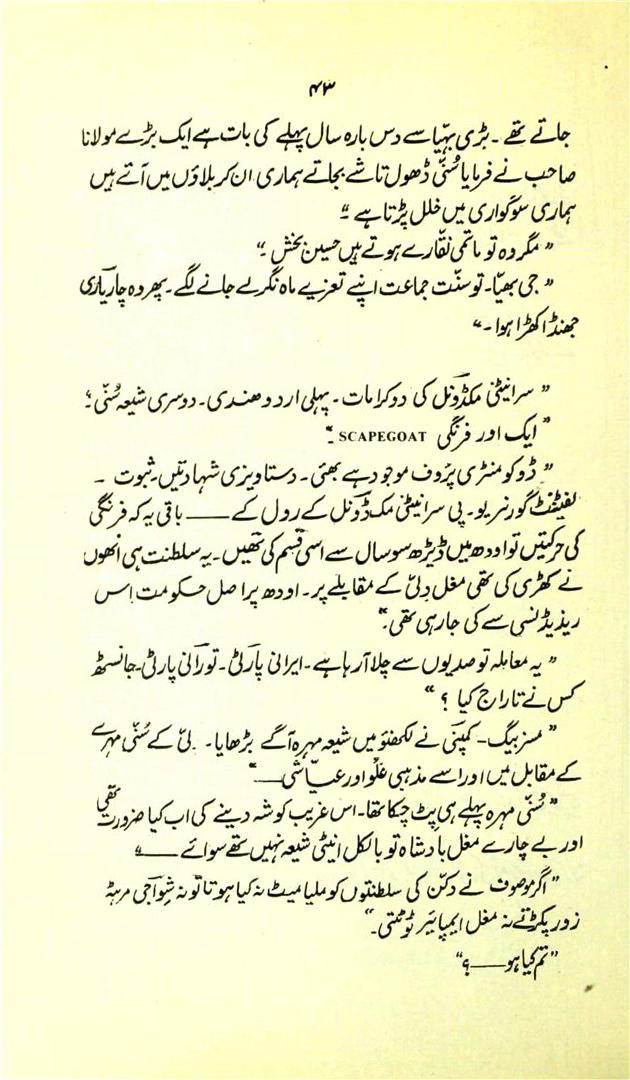 ۴۳
جاتے تھے۔ بڑی بہیّا سے دس بارہ سال پہلے کی بات ہے ایک بڑے مولانا
صاحب نے فرمایا سُنّی ڈھول تاشے بجاتے ہماری ان کربلاؤں میں آتے ہیں
ہماری سوگواری میں خلل پڑتا ہے“
”مگر وہ تو ماتمی نقّارے ہوتے ہیں حسین بخش۔“
”جی بھیّا۔ تو سنّت جماعت اپنے تعزیے ماہ نگر لے جانے لگے۔ پھر وہ چاریاری
جھنڈا کھڑا ہوا۔“
”سر اینٹنی مکڈونل کی دو کرامات۔ پہلی اردو ھندی۔ دوسری شیعہ سُنّی؛
”ایک اور فرنگی SCAPEGOAT۔“
”ڈوکومنٹری پرُوف موجود ہے بھئی۔ دستاویزی شہادتیں۔ ثبوت ۔
لفٹننٹ گورنر یو۔ پی سر اینٹنی مک ڈونل کے رول کے —— باقی یہ کہ فرنگی
کی حرکتیں تو اودھ میں ڈیڑھ سو سال سے اسی قسم کی تھیں۔ یہ سلطنت ہی انھوں
نے کھڑی کی تھی مغل دِلّی کے مقابلے پر۔ اودھ پر اصل حکومت اِس
ریذیڈنسی سے کی جا رہی تھی۔“
”یہ معاملہ تو صدیوں سے چلا آ رہا ہے۔ ایرانی پارٹی۔ تورانی پارٹی۔ جانسٹھ
کس نے تاراج کیا ؟“
”مسز بیگ۔ کمپنی نے لکھنؤ میں شیعہ مہرہ آگے بڑھایا۔ دلّی کے سُنّی مہرے
کے مقابل میں اور اسے مذہبی غلُو اور عیّاشی——“
”سُنّی مہرہ پہلے ہی پِٹ چکا تھا۔ اس غریب کو شہ دینے کی اب کیا ضرورت تھی
اور بے چارے مغل بادشاہ تو بالکل اینٹی شیعہ نہیں تھے سوائے ——“
”اگر موصوف نے دکّن کی سلطنتوں کو ملیا میٹ نہ کیا ہوتا تو نہ شِواجی مرہٹہ
زور پکڑتے نہ مغل ایمپائیر ٹوٹتی۔“
”تم کیا ہو——؟“